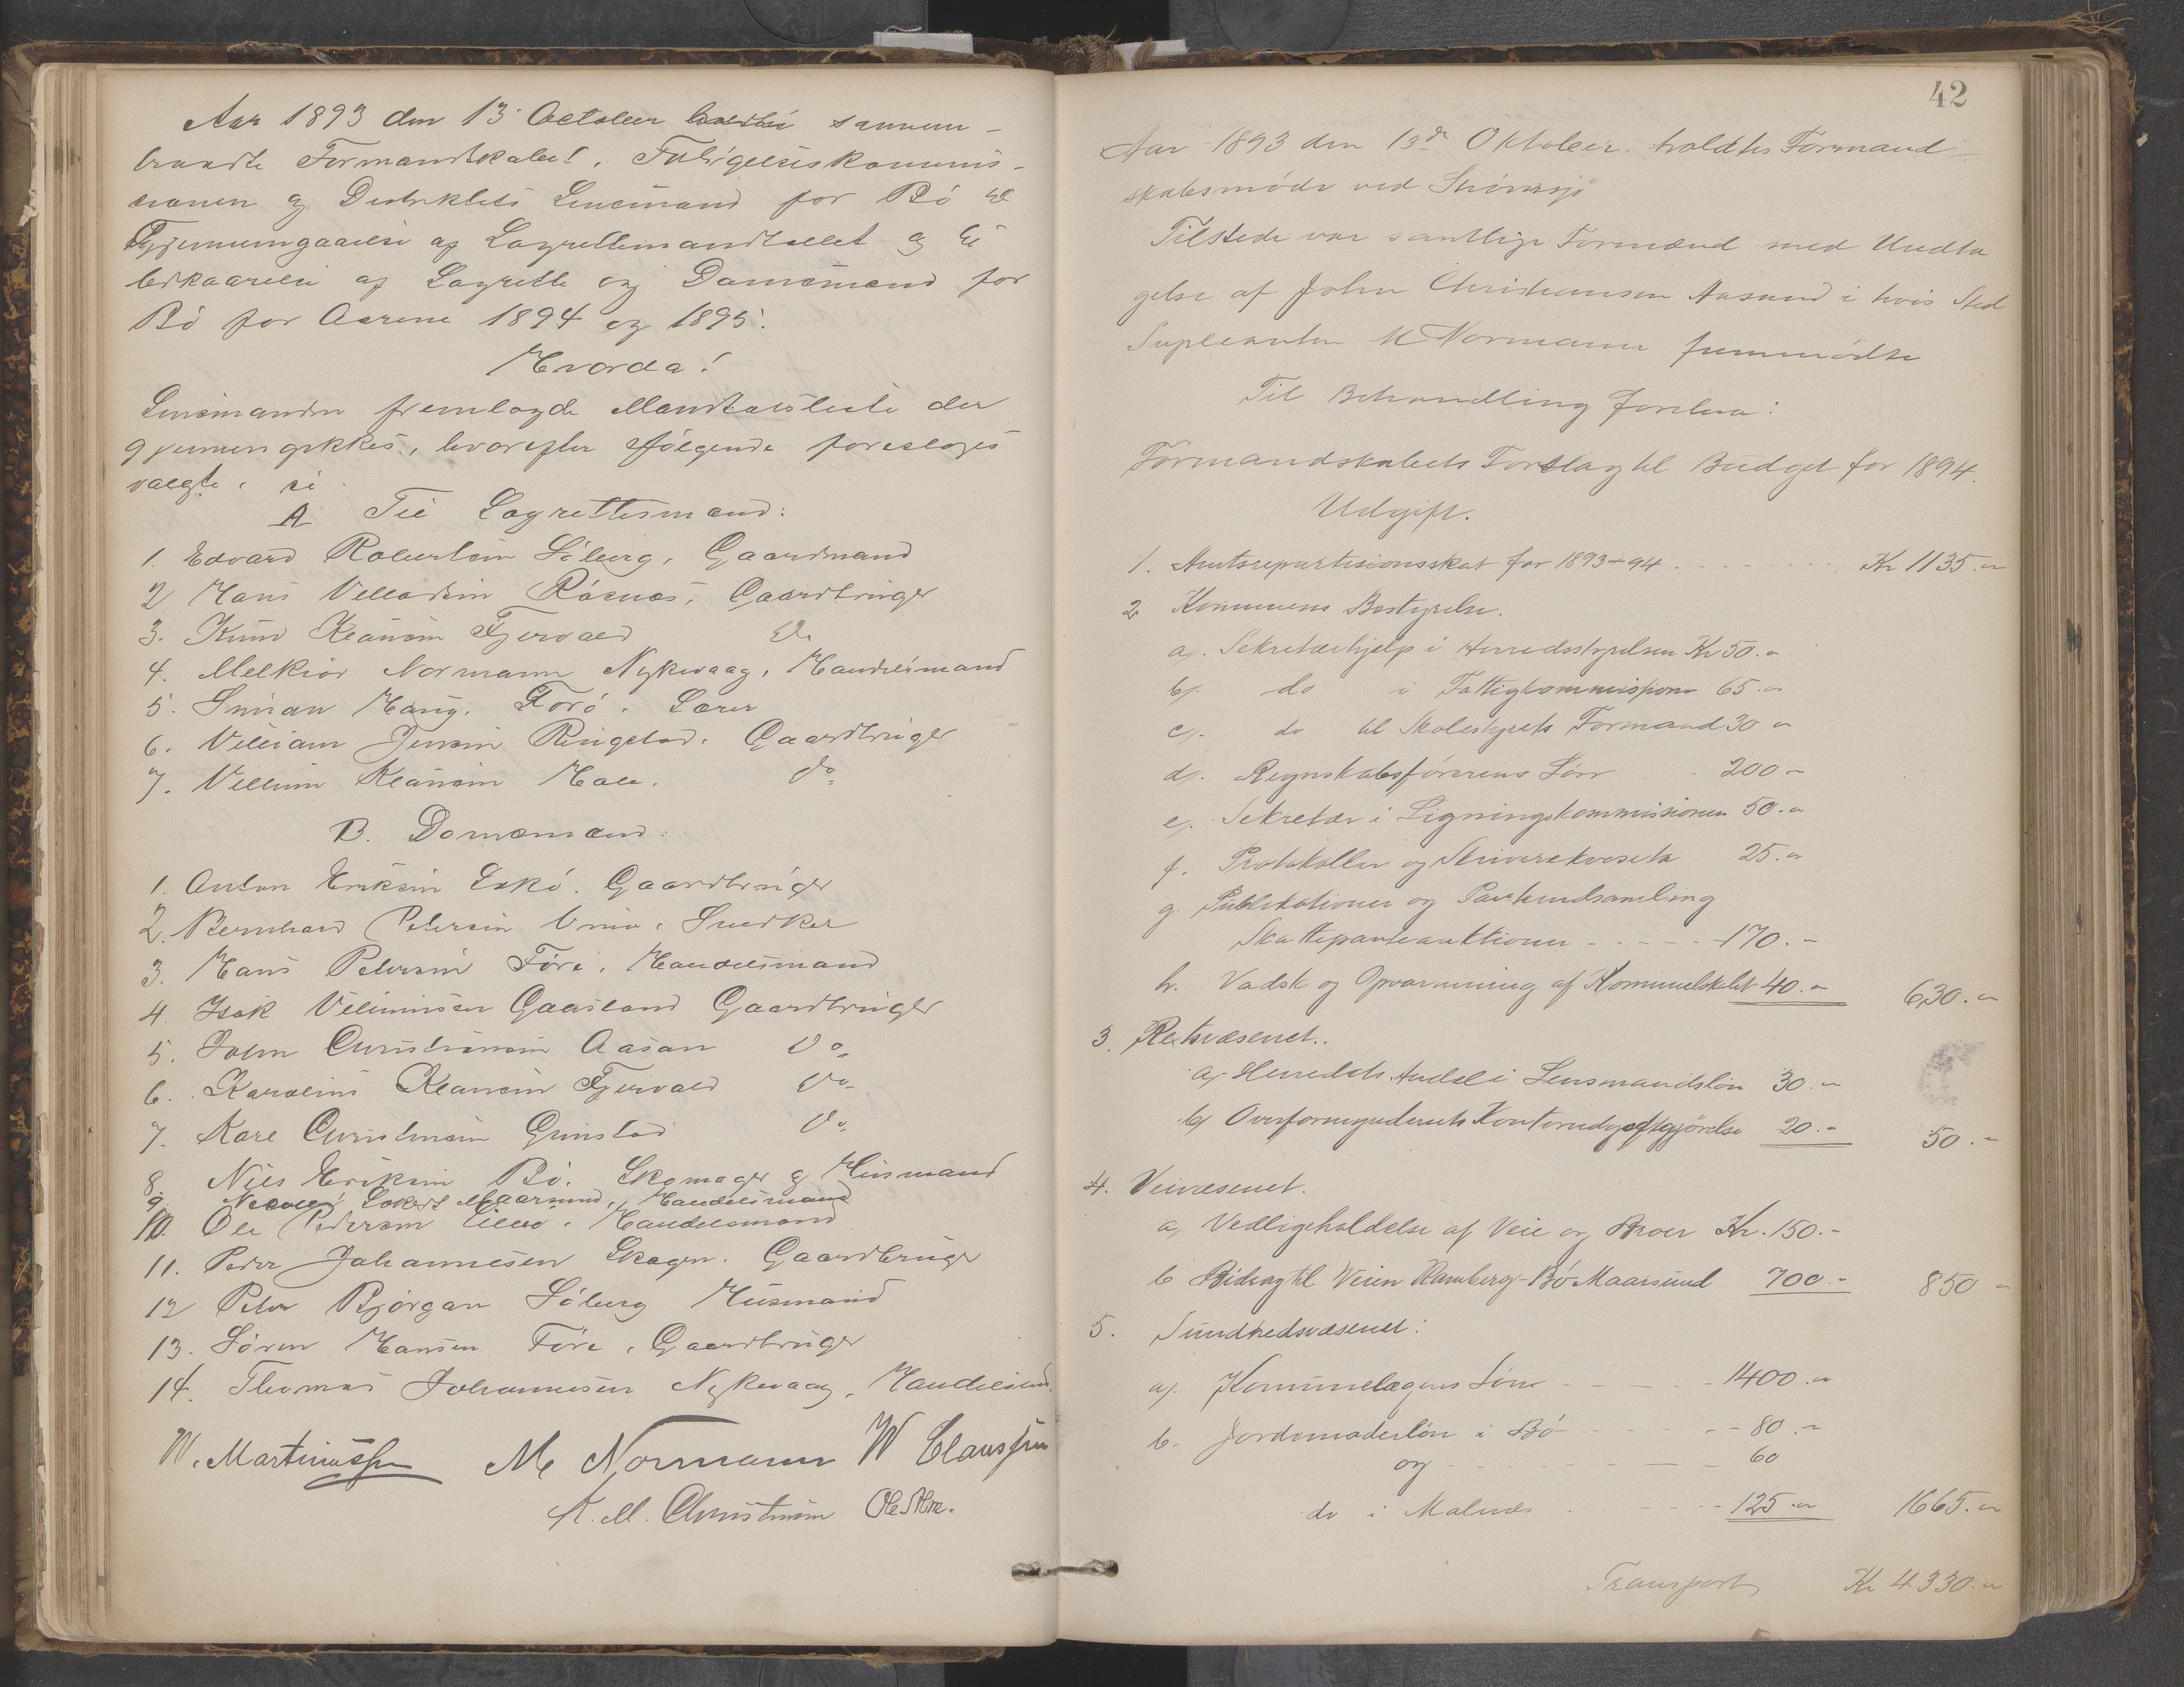 Aar 1893 den 13 October sammen-
traadte Formandskabet, Forligelseskommis-
sionen og Distriktets Lensmand for Bö til
Gjennemgaaelse af Lagrettemandtallet og til
Udkaarelse af Lagrette og Domsmænd for
Bö for Aarene 1894 og 1895.
Hvorda!
Lensmanden fremlagde Mandtalsliste der
gjennemgikkes, hvorefter fölgende foresloges
valgte:
A Til Lagrettesmænd:
1. Edvard Robertsen Söberg, Gaardmand
2. Hans Velladsen Röснæs, Gaardbruger
3. Knud Klausen Fjærvold do
4. Melkior Normann Nykvaag, Handelsmand
5. Simon Haug, Forö, Lærer
6. Villiam Jensen Ringstad, Gaardbruger
7. Villum Klausen Hole, do
B. Domsmænd:
1. Anton Eriksen Eskö, Gaardbruger
2. Bernhard Petersen Vinje, Snedker
3. Hans Petersen Före, Handelsmand
4. Isak Villumsen Gaasland Gaardbruger
5. John Christiansen Aasan do
6. Karolius Klausen Fjærvold do
7. Kare Christensen Grimstad do
8. Nils Eriksen Bö, Skomager & Husmand
9. Lokert Maarsund, Handelsmand
10. Ole Pedersen, Handelsmand
11. Peder Johannesen Skagen, Gaardbruger
12 Peter Björgan Söberg Husmand
13. Sören Hansen Före, Gaardbruger
14. Thomas Johannesen Nykvaag, Handelsm.
M. Martinussen M Normann W Claussen
K. M. Christensen
42
Aar 1893 den 13de Oktober holdtes Formand-
skabsmöde ved Steinesjö
Tilstede var samtlige Formænd med Undta
gelse af John Christiansen Aasand i hvis Sted
Supleanten M Normann fremmödte
Til Behandling forelaa:
Formandskabets Forslag til Budget for 1894.
Udgift.
1. Amtsrepartisionsskat for 1893-94 . . . Kr 1135.-
2 Kommunens Bestyrelse.
a). Sekretærhjelp i Herredsstyrelsen Kr 50.-
b). do i Fattigkommissionen 65.-
c). do til Skolestyrets Formand 30 -
d). Regnskabsförerens Lön - 200 -
e). Sekretær i Ligningskommissionen 50.-
f. Protokoller og Skriverekvisita 25.-
g. Publikationer og Pantindsamling
Skattepanteauktioner - - - - 170.-
h. Vadsk og Opvarmning af Kommunelokalet 40.- 630.-
3. Retsvæsenet..
a) Herredets Andel i Lensmandslön 30.-
b) Overformynderiets Kontorudgiftgjörelse 20.- 50.-
4. Veivæsenet.
a) Vedligeholdelse af Veie og Broer Kr. 150.-
b Bidrag til Veien Ramberg-Bö-Maarsund 700.- 850 -
5. Sundhedsvæsenet:
a). Kommunelægens Lön - - - 1400.-
b. Jordemoderlön i Bö - - - - 80.-
og - - - - - 60
do i Malnæs - - - - 125.- 1665.-
Transport Kr 4330.-